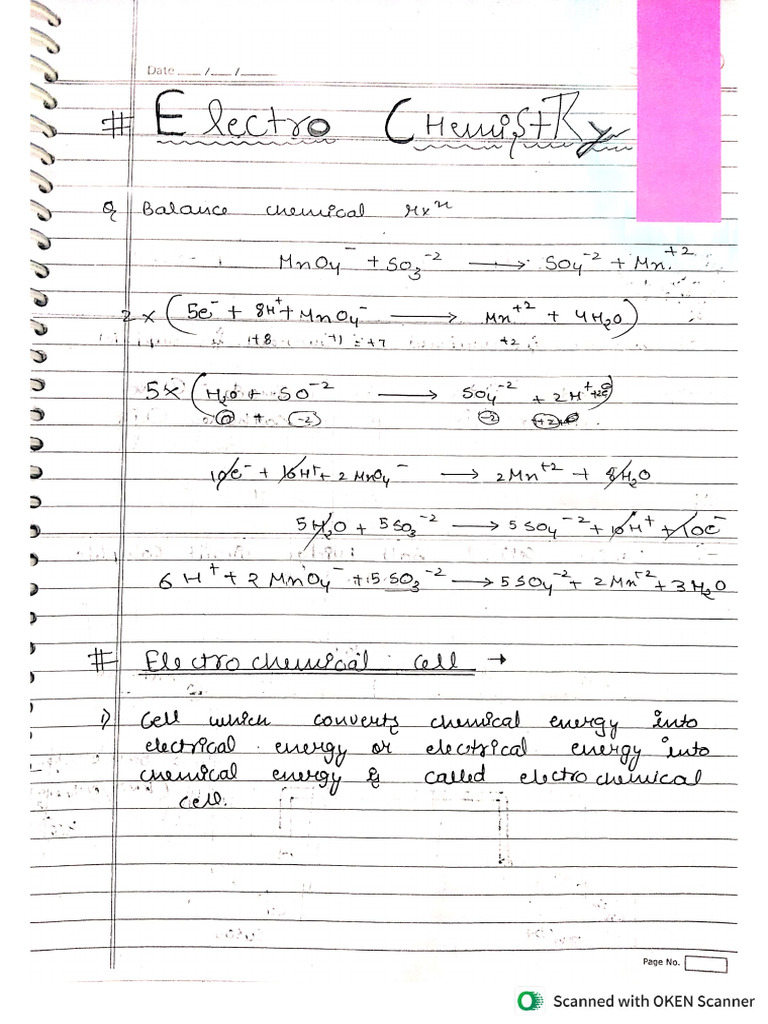 Date ___/___/___
# Electro ChemistRy
Q Balance chemical rxⁿ
MnO₄⁻ + SO₃⁻² ⟶ SO₄⁻² + Mn⁺²
2 × (5e⁻ + 8H⁺ + MnO₄⁻ ⟶ Mn⁺² + 4H₂O)
+8 -1 = +7 +2
5 × (H₂O + SO⁻² ⟶ SO₄⁻² + 2H⁺ + 2e⁻)
0 + (-2) -2 +2
10e⁻ + 16H⁺ + 2MnO₄⁻ ⟶ 2Mn⁺² + 8H₂O
5H₂O + 5SO₃⁻² ⟶ 5SO₄⁻² + 10H⁺ + 10e⁻
6H⁺ + 2MnO₄⁻ + 5SO₃⁻² ⟶ 5SO₄⁻² + 2Mn⁺² + 3H₂O
# Electrochemical cell →
1) Cell which converts chemical energy into
electrical energy or electrical energy into
chemical energy is called electrochemical
cell.
Page No.
Scanned with OKEN Scanner